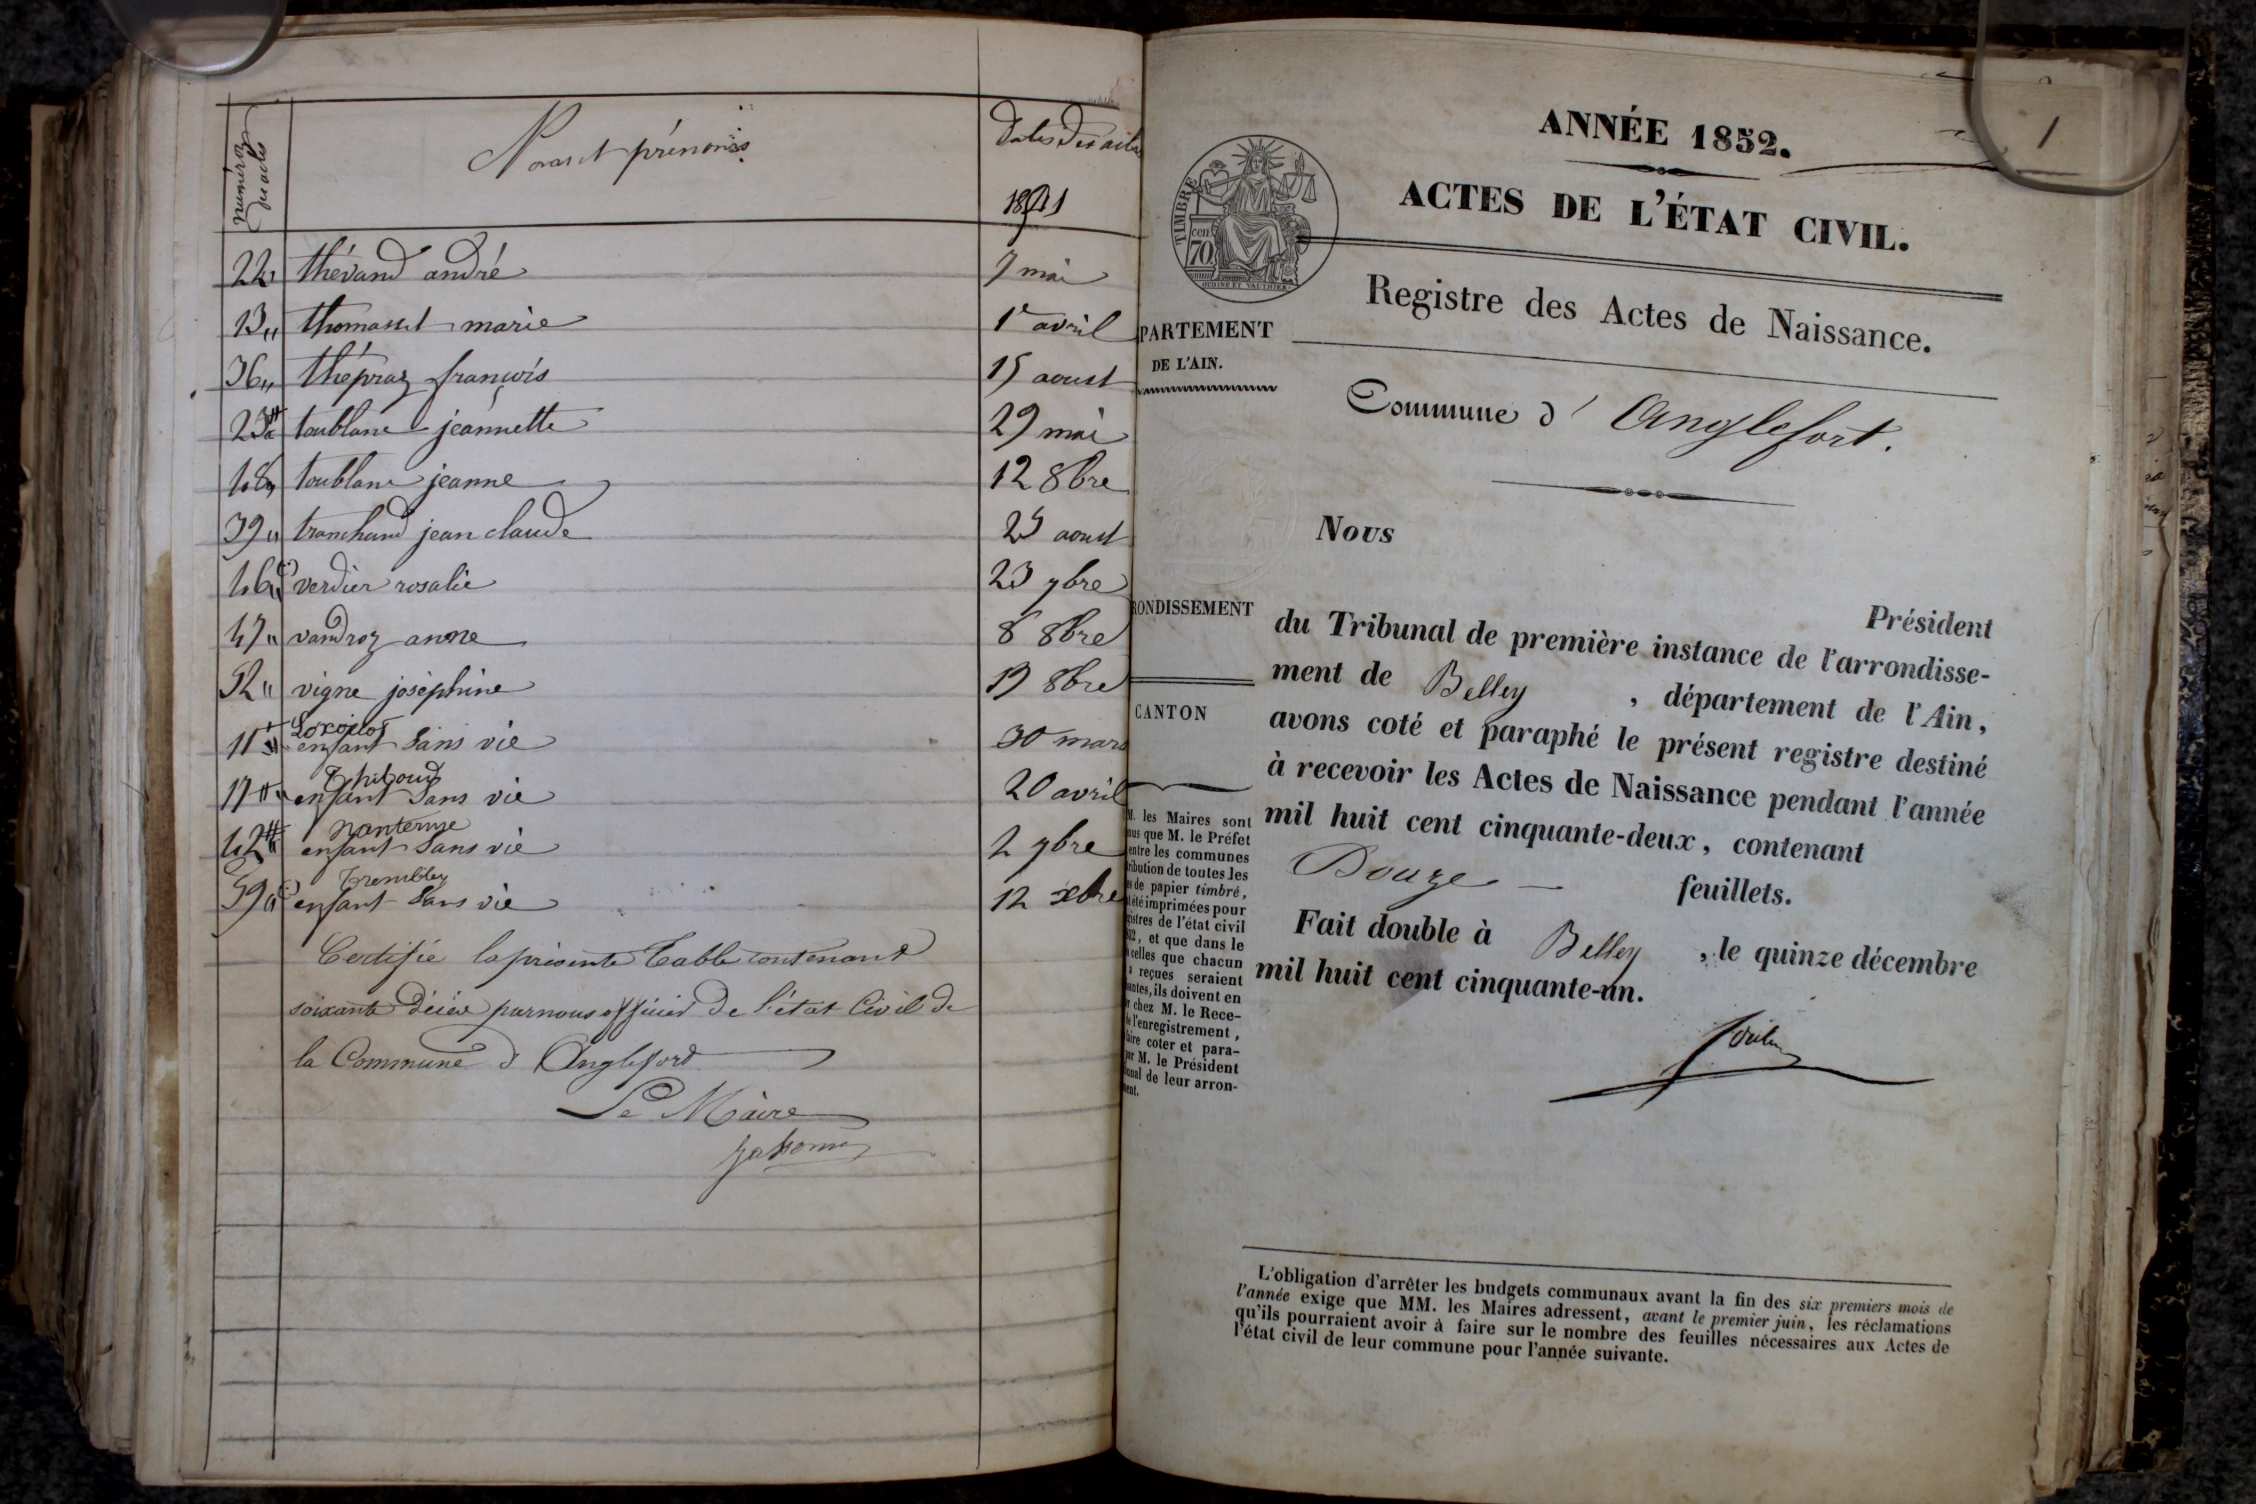 Numéros des actes
Noms et prénoms
Dates des actes
1851
22 thévand andré 7 mai
13 " thomasset marie 1er avril
36 " thépraz françois 15 aoust
23 toublanc jeannette 29 mai
48 toublanc jeanne 12 8bre
39 " tranchand jean claude 25 aoust
46 verdier rosalie 23 7bre
47 " vandroz anne 8 8bre
52 " vigne joséphine 19 8bre
11 enfant sans vie 30 mars
Thiboud
17 enfant sans vie 20 avril
nanterme
42 enfant sans vie 2 7bre
Trembley
59 enfant sans vie 12 xbre
Certifié la présente Table contenant
soixante décès par nous officier de l'état Civil de
la Commune d'Anglefort
Le Maire
1
ANNÉE 1852.
ACTES DE L'ÉTAT CIVIL.
TIMBRE
70 cen
OUDINE ET VAUTHIER
Registre des Actes de Naissance.
PARTEMENT
DE L'AIN.
Commune d'Anglefort.
Nous
RONDISSEMENT
Président
du Tribunal de première instance de l'arrondisse-
ment de Belley , département de l'Ain,
CANTON
avons coté et paraphé le présent registre destiné
à recevoir les Actes de Naissance pendant l'année
mil huit cent cinquante-deux, contenant
Douze — feuillets.
Fait double à Belley , le quinze décembre
mil huit cent cinquante-un.
M. les Maires sont
que M. le Préfet
entre les communes
tribution de toutes les
de papier timbré,
été imprimées pour
istres de l'état civil
, et que dans le
celles que chacun
reçues seraient
santes, ils doivent en
chez M. le Rece-
de l'enregistrement,
faire coter et para-
par M. le Président
unal de leur arron-
ment.
L'obligation d'arrêter les budgets communaux avant la fin des six premiers mois de
l'année exige que MM. les Maires adressent, avant le premier juin, les réclamations
qu'ils pourraient avoir à faire sur le nombre des feuilles nécessaires aux Actes de
l'état civil de leur commune pour l'année suivante.